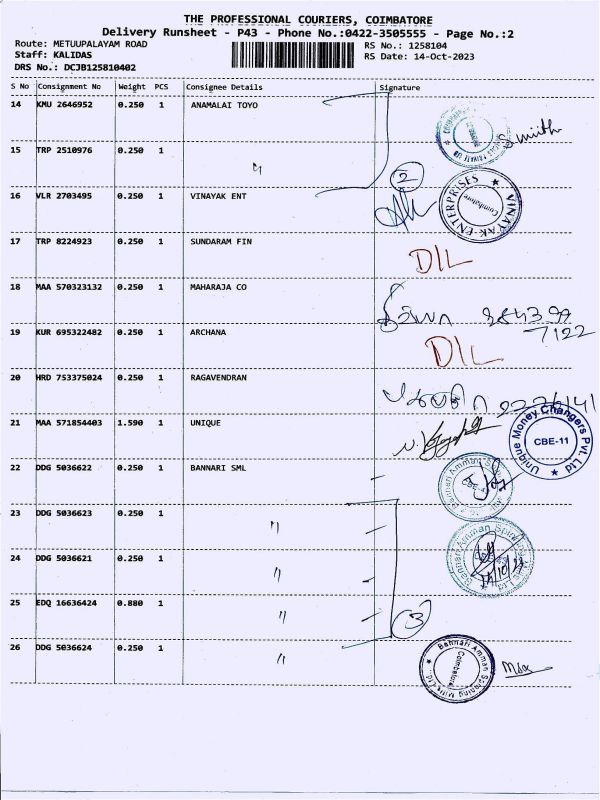 THE PROFESSIONAL COURIERS, COIMBATORE
Delivery Runsheet - P43 - Phone No.:0422-3505555 - Page No.:2
Route: METUUPALAYAM ROAD
RS No.: 1258104
Staff: KALIDAS
RS Date: 14-Oct-2023
DRS No.: DCJB125810402
S No Consignment No Weight PCS Consignee Details Signature
14 KMU 2646952 0.250 1 ANAMALAI TOYO
15 TRP 2510976 0.250 1 〃
2
16 VLR 2703495 0.250 1 VINAYAK ENT
VINAYAK ENTERPRISES Coimbatore
17 TRP 8224923 0.250 1 SUNDARAM FIN
D/L
18 MAA 570323132 0.250 1 MAHARAJA CO
19 KUR 695322482 0.250 1 ARCHANA
7122
D/L
20 HRD 753375024 0.250 1 RAGAVENDRAN
21 MAA 571854403 1.590 1 UNIQUE
Unique Money Changers Pvt. Ltd CBE-11
22 DDG 5036622 0.250 1 BANNARI SML
23 DDG 5036623 0.250 1 〃
24 DDG 5036621 0.250 1 〃
25 EDQ 16636424 0.880 1 〃
3
26 DDG 5036624 0.250 1 〃
Bannari Amman Spinning Mills Ltd. Coimbatore